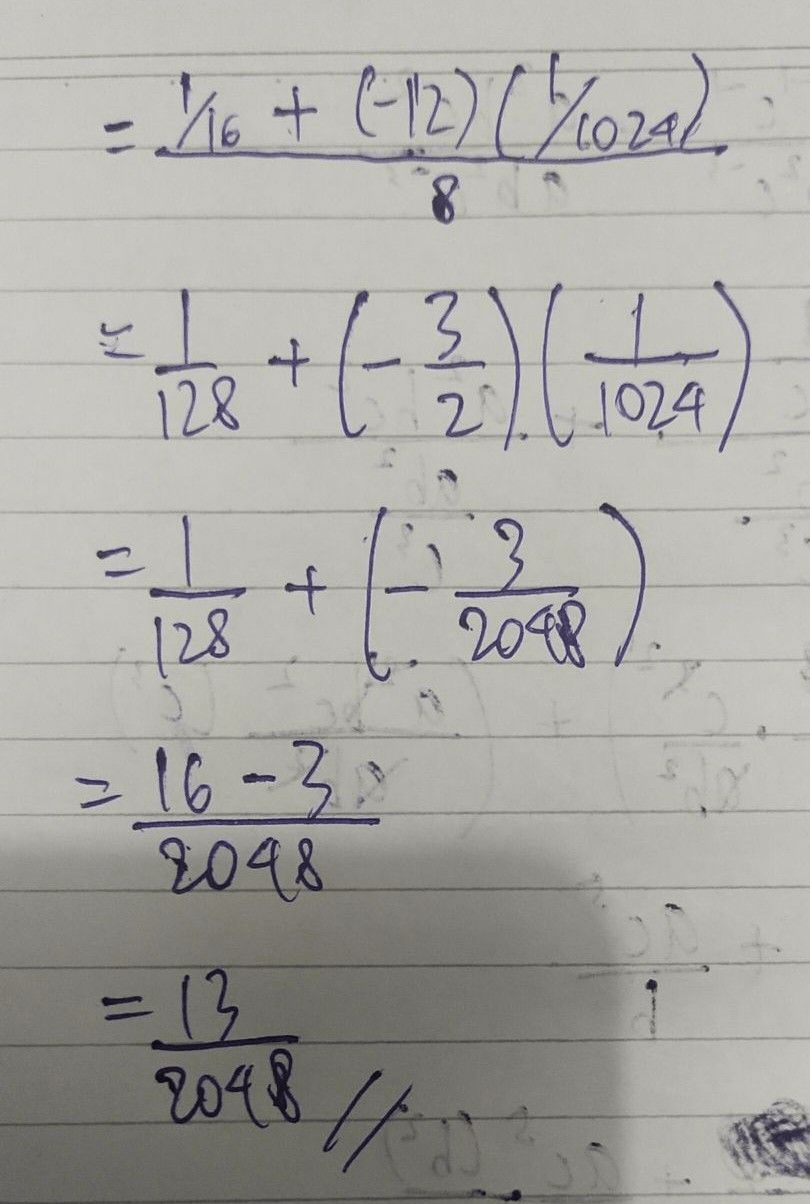 = 1/16 + (-12) (1/1024) / 8
= 1/128 + (- 3/2) (1/1024)
= 1/128 + (- 3/2048)
= 16 - 3 / 2048
= 13/2048 //